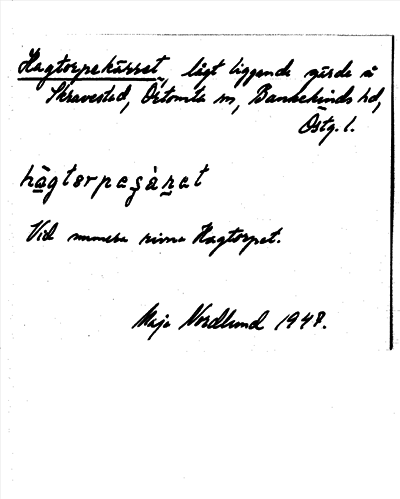 Hagtorpekärret, lågt liggende gärde å
Skravestad, Örtomta sn, Bankekinds hd,
Östg. l.
hagtorpeçàret
Vid numera rivna Hagtorpet.
Maja Nordlund 1948.